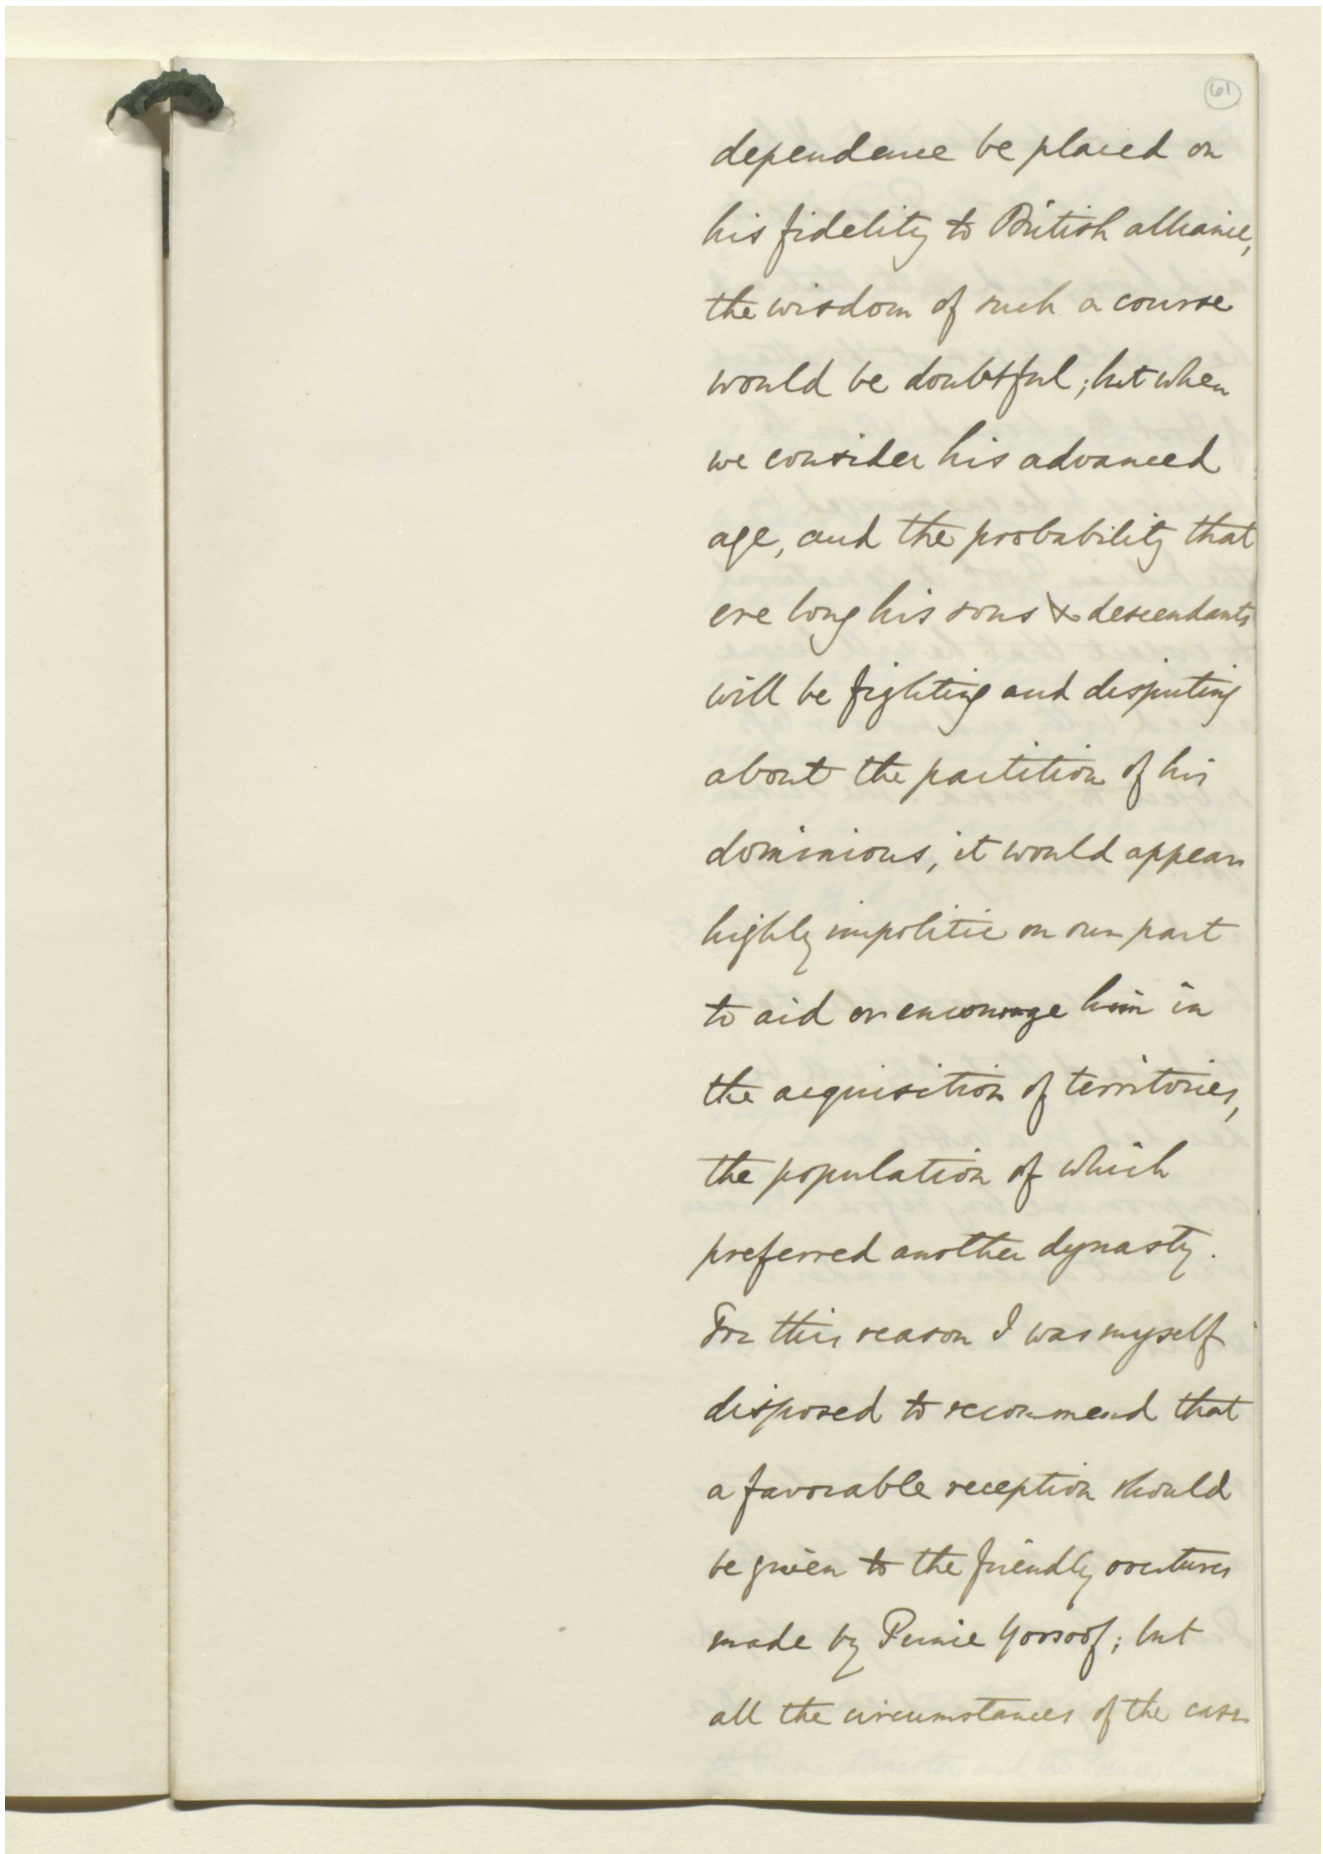 61
dependence be placed on
his fidelity to British alliance,
the wisdom of such a course
would be doubtful; but when
we consider his advanced
age, and the probability that
ere long his sons & descendants
will be fighting and disputing
about the partition of his
dominions, it would appear
highly impolitic on our part
to aid or encourage him in
the acquisition of territories,
the population of which
preferred another dynasty.
For this reason I was myself
disposed to recommend that
a favorable reception should
be given to the friendly overtures
made by Prince Yoosoof; but
all the circumstances of the case